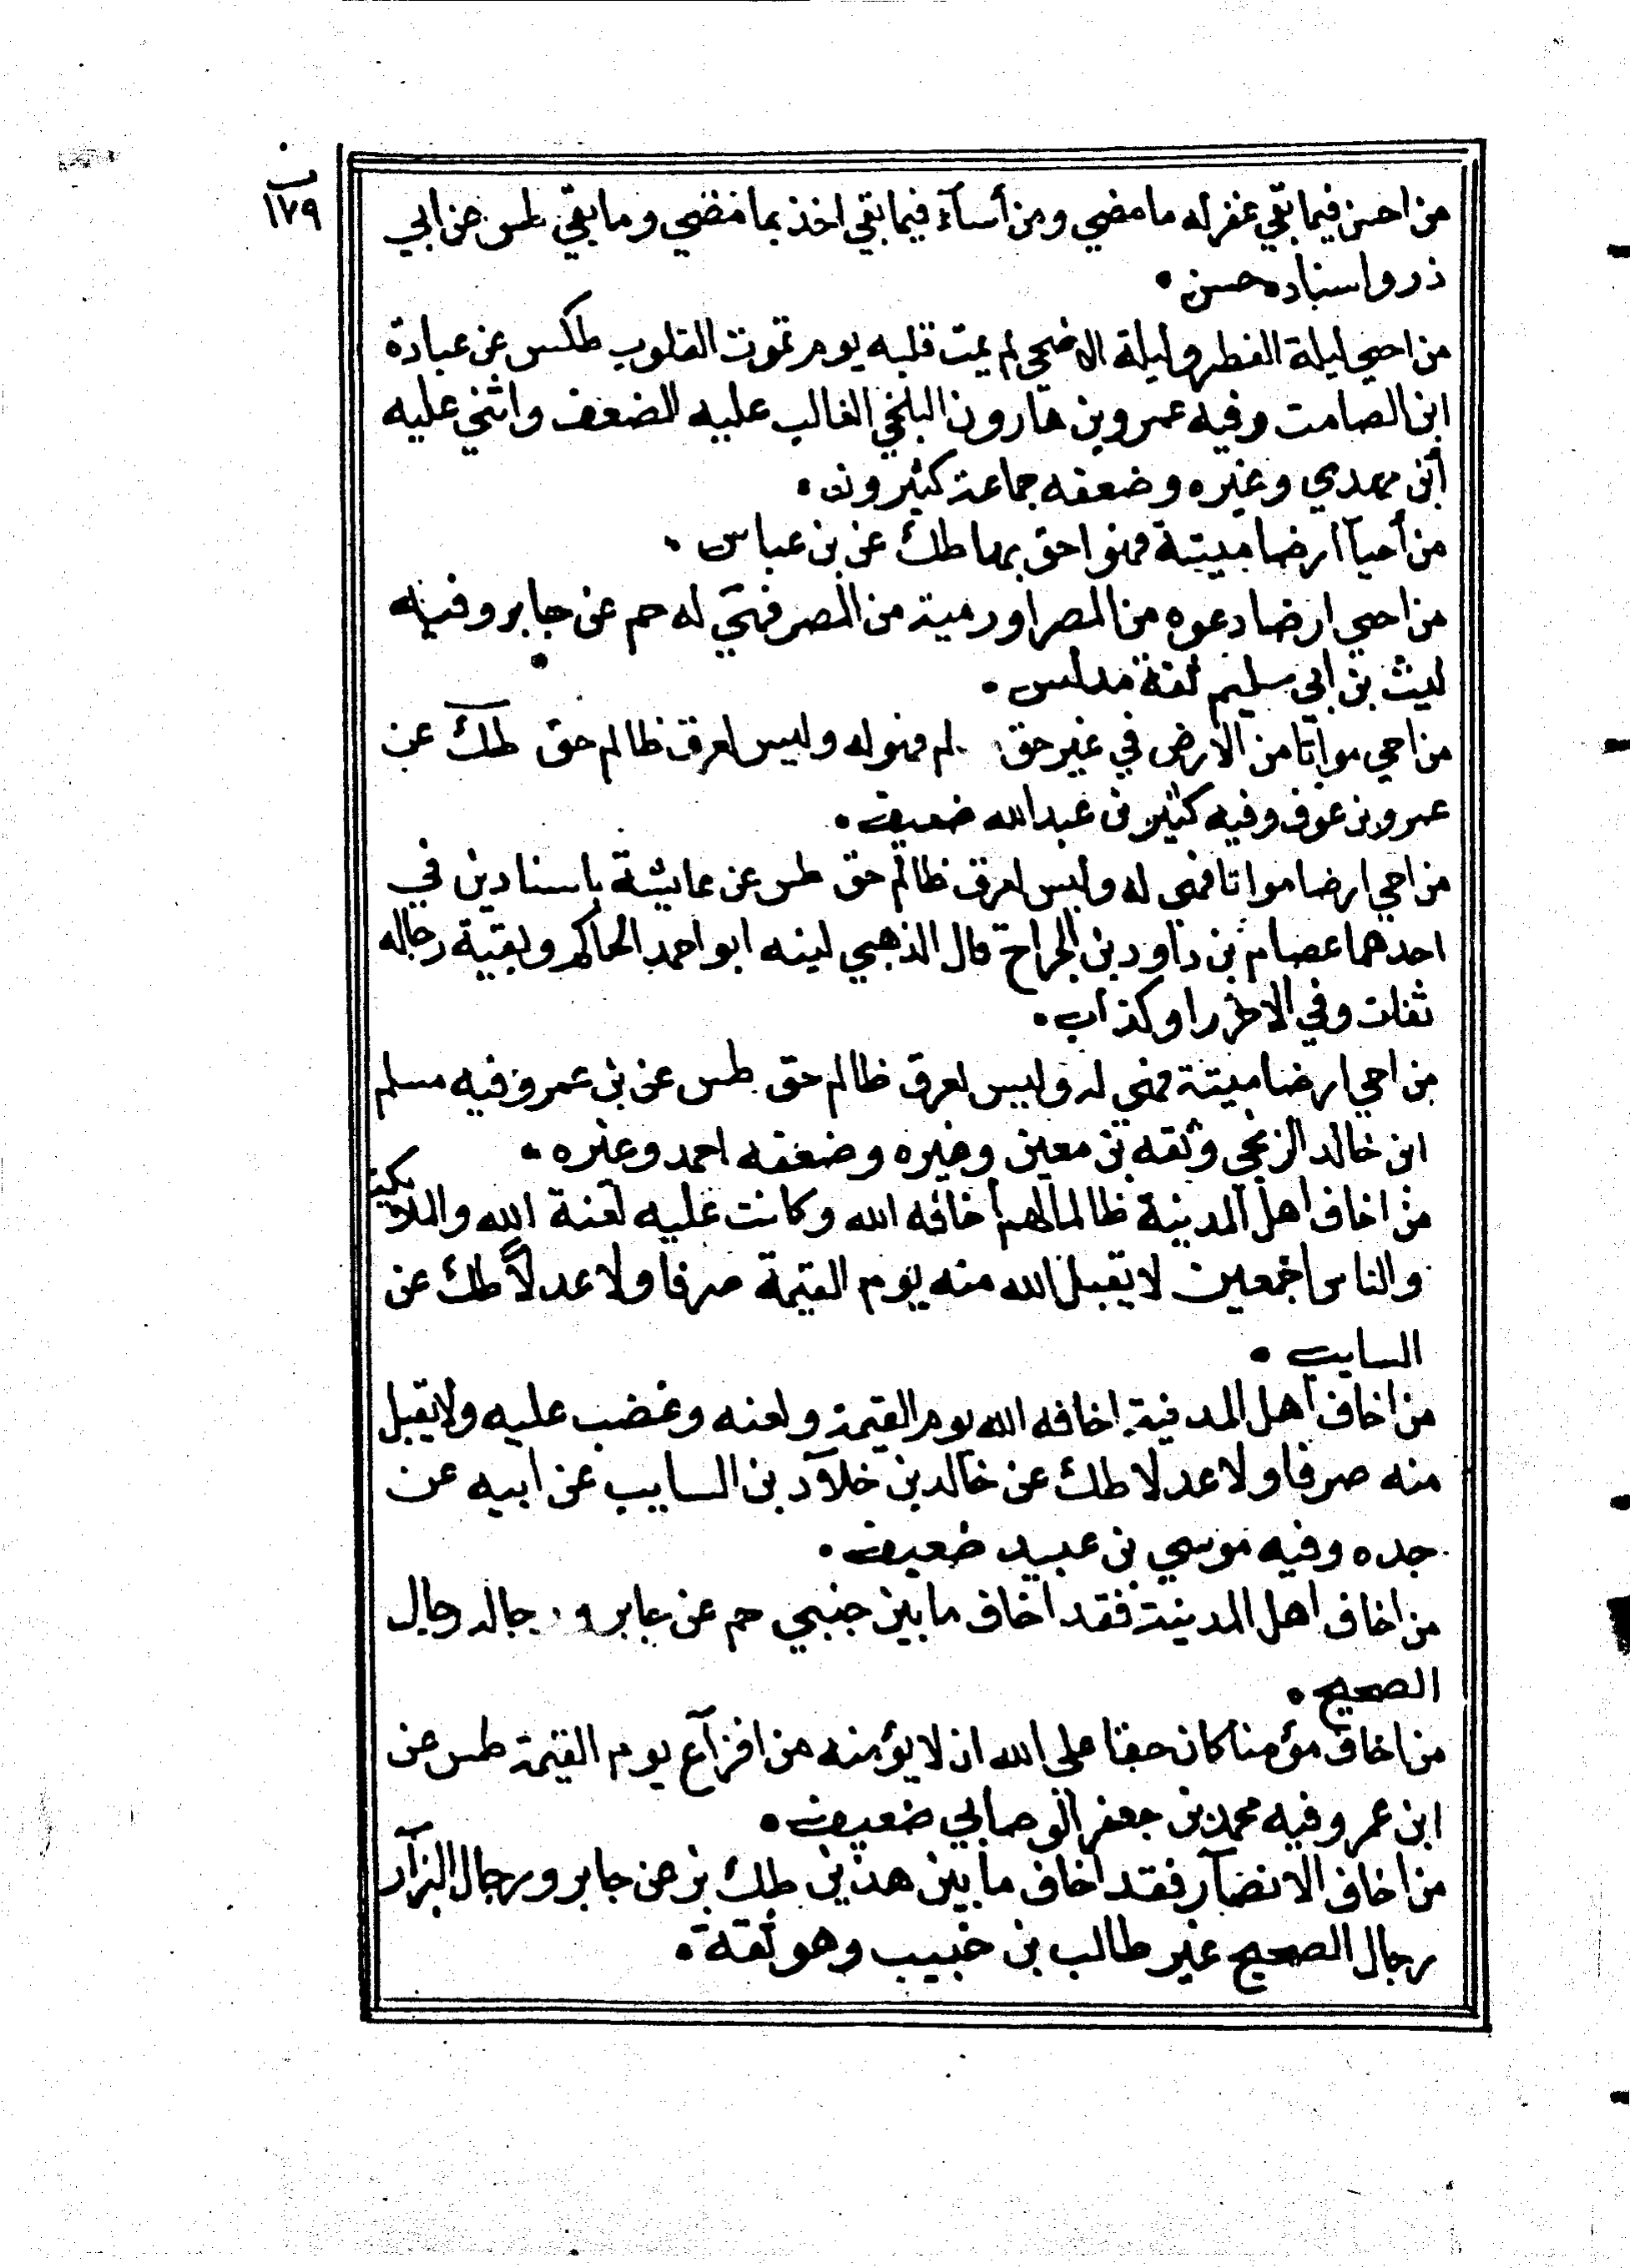 ب
١٧٩
من احسن فيما بقي غفر له ما مضي ومن أسآء فيما بقي اخذ بما مضي وما بقي طس عن ابي
ذر واسناده حسن •
من احيي ليلة الفطر وليلة الاضحي لم يمت قلبه يوم تموت القلوب طكس عن عبادة
ابن الصامت وفيه عمر وبن هارون البلخي الغالب عليه الضعف واثني عليه
أبن مهدي وغيره وضعفه جماعة كثيرون •
من أحيآ ارضا ميتة فهو احق بها طك عن بن عباس •
من احيي ارضا دعوه من المصر او رمية من المصر فهي له حم عن جابر وفيه
ليث بن ابي سليم ثقة مدلس •
من احيي مواتا من الارض في غير حق لم فهو له وليس لعرق ظالم حق طك عن
عمرو بن عوف وفيه كثير بن عبد الله ضعيف •
من احيي ارضا مواتا فهي له وليس لعرق ظالم حق طس عن عايشة باسنادين في
احدهما عصام بن داود بن الجراح قال الذهبي لينه ابو احمد الحاكم وبقية رجاله
ثقات وفي الاخر راو كذاب •
من احيي ارضا ميتة فهي له وليس لعرق ظالم حق طس عن بن عمر وفيه مسلم
ابن خالد الزنجي وثقه بن معين وغيره وضعفه احمد وغيره •
من اخاف اهل المدينة ظالما لهم أخافه الله وكانت عليه لعنة الله والملايكة
والناس اجمعين لا يقبل الله منه يوم القيمة صرفا ولا عدلاً طك عن
السايب •
من اخاف اهل المدينة اخافه الله يوم القيمة ولعنه وغضب عليه ولا يقبل
منه صرفا ولا عدلا طك عن خالد بن خلآد بن السايب عن ابيه عن
جده وفيه موسي بن عبيد ضعيف •
من اخاف اهل المدينة فقد اخاف ما بين جنبي حم عن جابر ورجاله رجال
الصحيح •
من اخاف مؤمنا كان حقا علي الله ان لا يؤمنه من افزآع يوم القيمة طس عن
ابن عمر وفيه محمد بن جعفر الوصابي ضعيف •
من اخاف الانصآر فقد اخاف ما بين هذين طك بز عن جابر ورجال البزآر
رجال الصحيح غير طالب بن حبيب وهو ثقة •